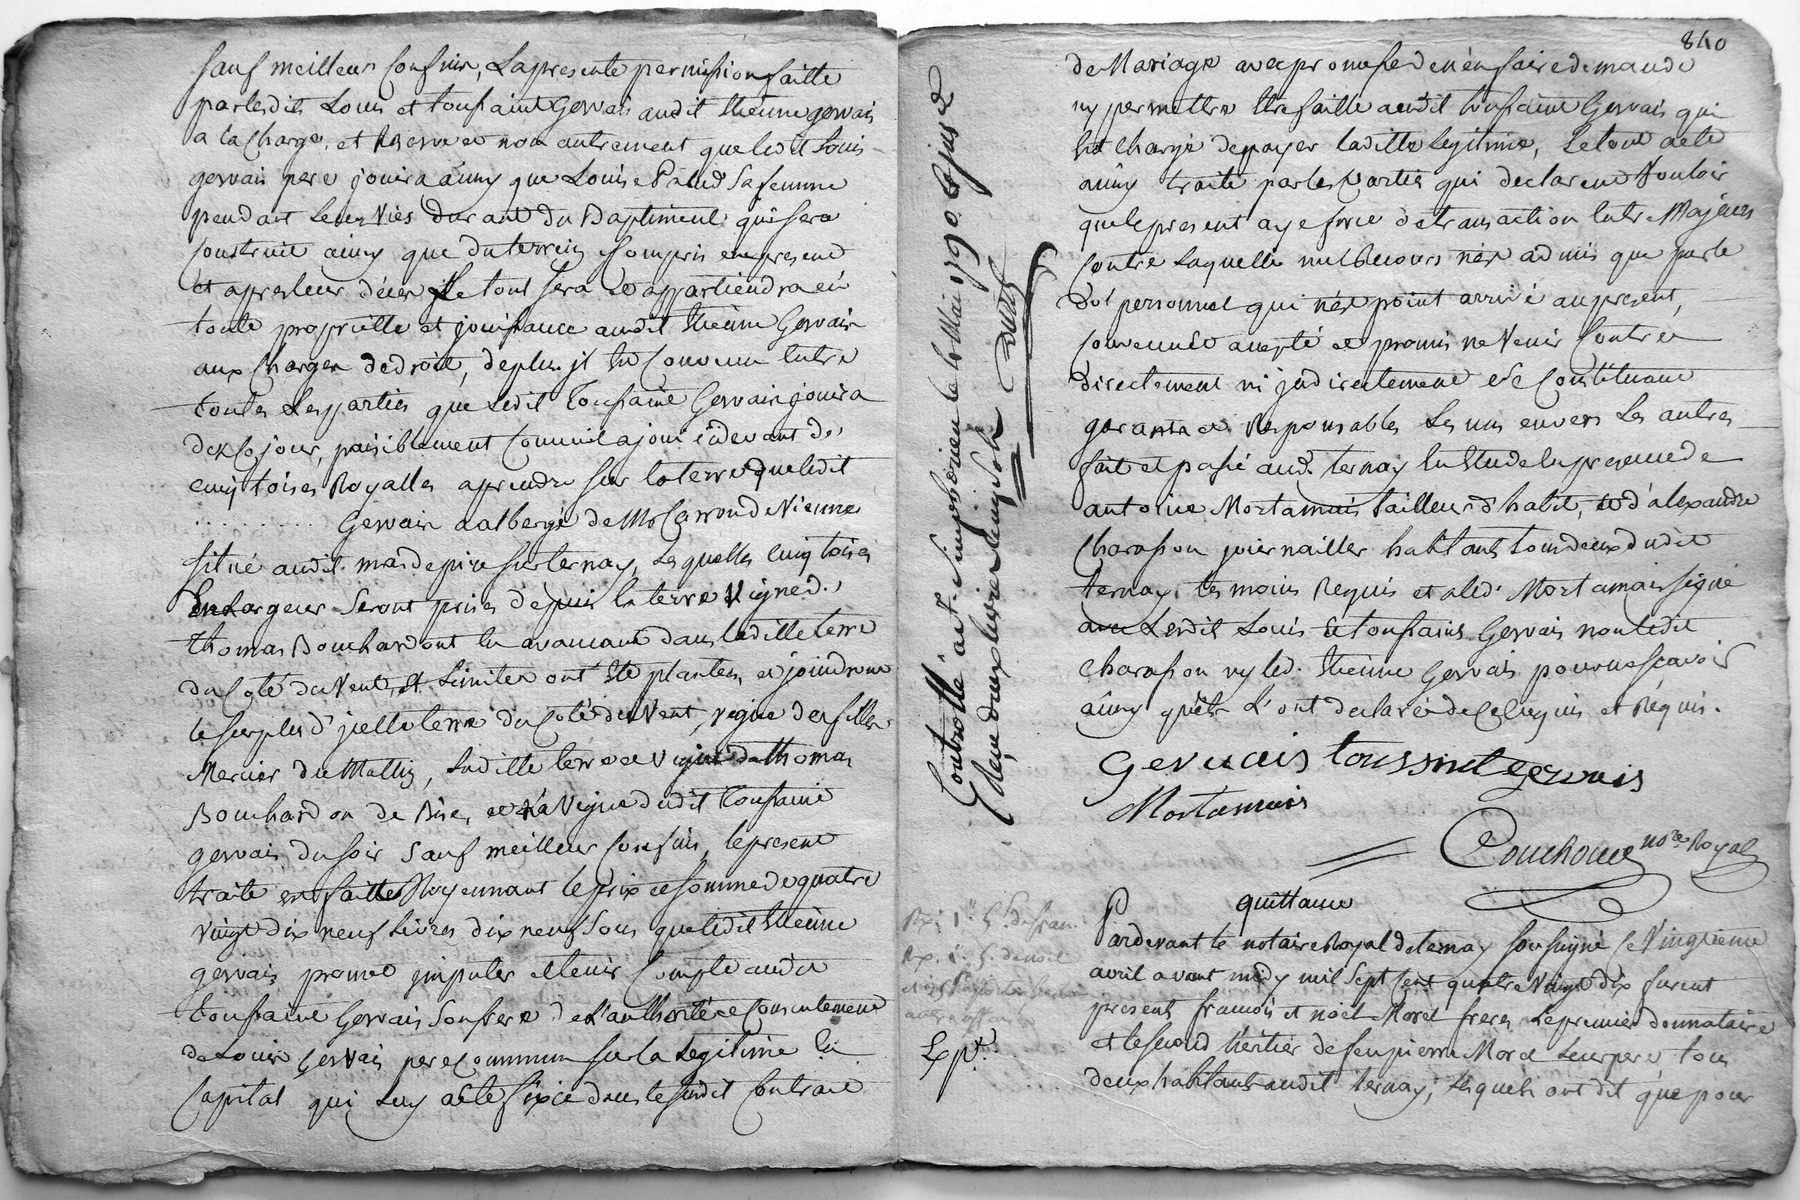 sauf meilleurs confins, La presente permission faitte
par lesdits Louis et toussaint Gervais audit Etienne gervais
a la charge, et Reserve et non autrement que ledit Louis
gervais pere jouira ainsy que Louise Palud sa femme
pendant leurs vies durant du Baptiment qui sera
construit ainsy que du terrein compris en present
et apres leur décès le tout sera et appartiendra en
toute proprietté et jouissance audit Etienne Gervais
aux charges de droit, de plus jl Est convenu Entre
toutes Les parties que Ledit toussaint Gervais jouira
dez ce jour, paisiblement comme il a joui cidevant de
cinq toises Royalles a prendre sur la terre que ledit
.......... Gervais a albergé de Mr de Vienne
situé audit mas de pire sur ternay, Lesquelles cinq toises
En Largeur seront prises depuis la terre et vigne d.
thomas Bouchardon En avancant dans laditte terre
du coté du vent, et Limites ont été plantés, et joindront
le surplus d'jcelle terre du coté du vent, vigne des filles
Mercier du Matin, Laditte terre et vigne de thomas
Bouchardon de Bise, et La vigne dudit toussaint
gervais du soir sauf meilleurs confins, le present
traité est faitte Moyennant le prix et somme de quatre
vingt dix neuf Livres dix neuf sous que ledit Etienne
gervais promet jmputer et tenir compte audit
toussaint Gervais son frere de L'authorité et consentement
de Louis Gervais pere commun sur la Legitime En
Capital qui Luy a été fixée dans le susdit Contrat
840
de Mariage avec promesse de n'en faire demande
ny permettre Etre faitte audit toussaint Gervais qui
Est chargé de payer laditte Legitime, Le tout a été
ainsy traité par les parties qui declarent vouloir
que le present aye force de transaction Entre Majeurs
contre Laquelle nul secours n'est admis que par le
dol personnel qui n'est point arrivé au present,
convenu accepté et promis ne venir Contre
directement ni jndirectement se Constituant
garants et Responsables Les uns envers Les autres
fait et passé aud. ternay En Etude En presence de
antoine Mortamais tailleur d'habit, et d'alexandre
Charasson journailler habitants tous deux dudit
ternay, temoins Requis et a led. Mortamais signé
avec Lesdits Louis et toussaint Gervais non ledit
Charasson ny led. Etienne Gervais pour ne scavoir
ainsy qu'ils L'ont declaré de ce enquis et Réquis.
Gervais toussint gervais
Mortamais
Couchoud nore Royal
Controllé a st Simphorien le 1790
deux livres cinq sols
quittance
Pardevant le notaire Royal de ternay soussigné ce vingtieme
avril avant midy mil sept cent quatre vingt dix furent
presents francois et noël Morel freres Le premier donnataire
et le second héritier de feu pierre Morel Leur pere tous
deux habitants audit ternay, Lesquels ont dit que pour
Exp.